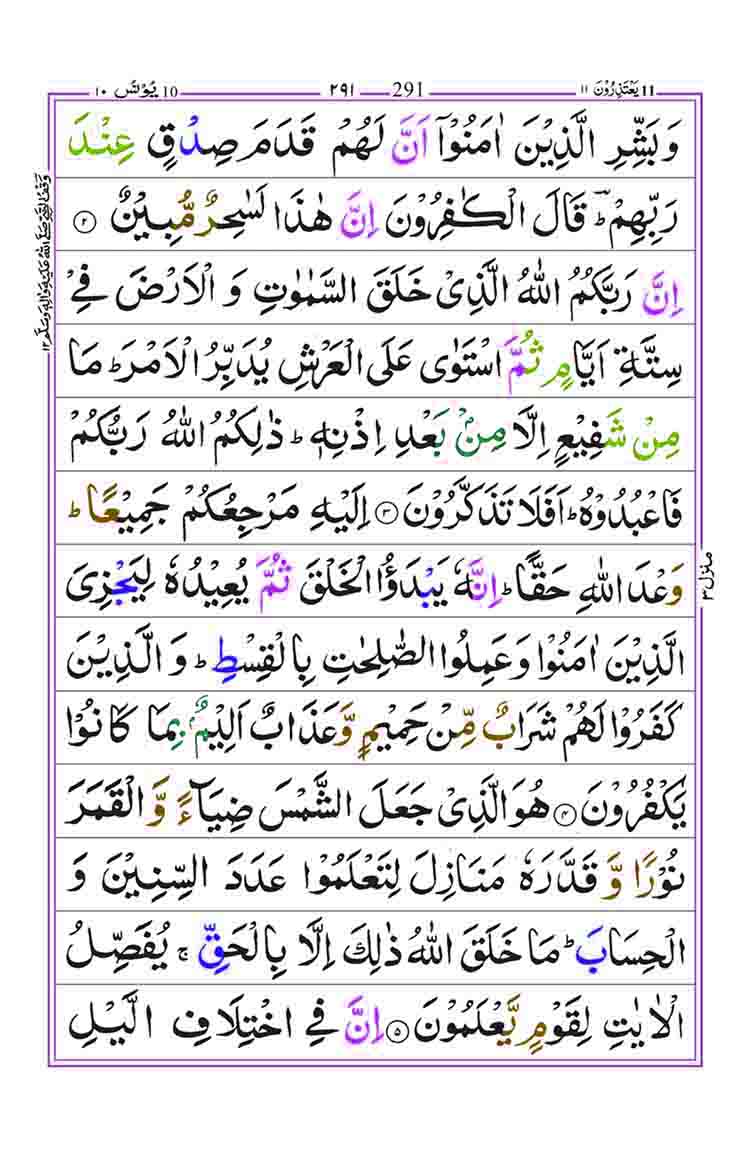 11 يَعْتَذِرُوْنَ ١١ 291 ٢٩١ 10 يُوْنُس ١٠
وَبَشِّرِ الَّذِيْنَ اٰمَنُوْۤا اَنَّ لَهُمْ قَدَمَ صِدْقٍ عِنْدَ
رَبِّهِمْ ؕ قَالَ الْكٰفِرُوْنَ اِنَّ هٰذَا لَسٰحِرٌ مُّبِيْنٌ ۝۲
اِنَّ رَبَّكُمُ اللّٰهُ الَّذِيْ خَلَقَ السَّمٰوٰتِ وَ الْاَرْضَ فِيْ
سِتَّةِ اَيَّامٍ ثُمَّ اسْتَوٰى عَلَى الْعَرْشِ يُدَبِّرُ الْاَمْرَ ؕ مَا
مِنْ شَفِيْعٍ اِلَّا مِنْۢ بَعْدِ اِذْنِهٖ ؕ ذٰلِكُمُ اللّٰهُ رَبُّكُمْ
فَاعْبُدُوْهُ ؕ اَفَلَا تَذَكَّرُوْنَ ۝۳ اِلَيْهِ مَرْجِعُكُمْ جَمِيْعًا ؕ
وَعْدَ اللّٰهِ حَقًّا ؕ اِنَّهٗ يَبْدَؤُا الْخَلْقَ ثُمَّ يُعِيْدُهٗ لِيَجْزِيَ
الَّذِيْنَ اٰمَنُوْا وَعَمِلُوا الصّٰلِحٰتِ بِالْقِسْطِ ؕ وَ الَّذِيْنَ
كَفَرُوْا لَهُمْ شَرَابٌ مِّنْ حَمِيْمٍ وَّعَذَابٌ اَلِيْمٌۢ بِمَا كَانُوْا
يَكْفُرُوْنَ ۝۴ هُوَ الَّذِيْ جَعَلَ الشَّمْسَ ضِيَآءً وَّ الْقَمَرَ
نُوْرًا وَّ قَدَّرَهٗ مَنَازِلَ لِتَعْلَمُوْا عَدَدَ السِّنِيْنَ وَ
الْحِسَابَ ؕ مَا خَلَقَ اللّٰهُ ذٰلِكَ اِلَّا بِالْحَقِّ ۚ يُفَصِّلُ
الْاٰيٰتِ لِقَوْمٍ يَّعْلَمُوْنَ ۝۵ اِنَّ فِي اخْتِلَافِ الَّيْلِ
منزل ۳
وقف النبي صلى الله عليه واله وسلم ١٢